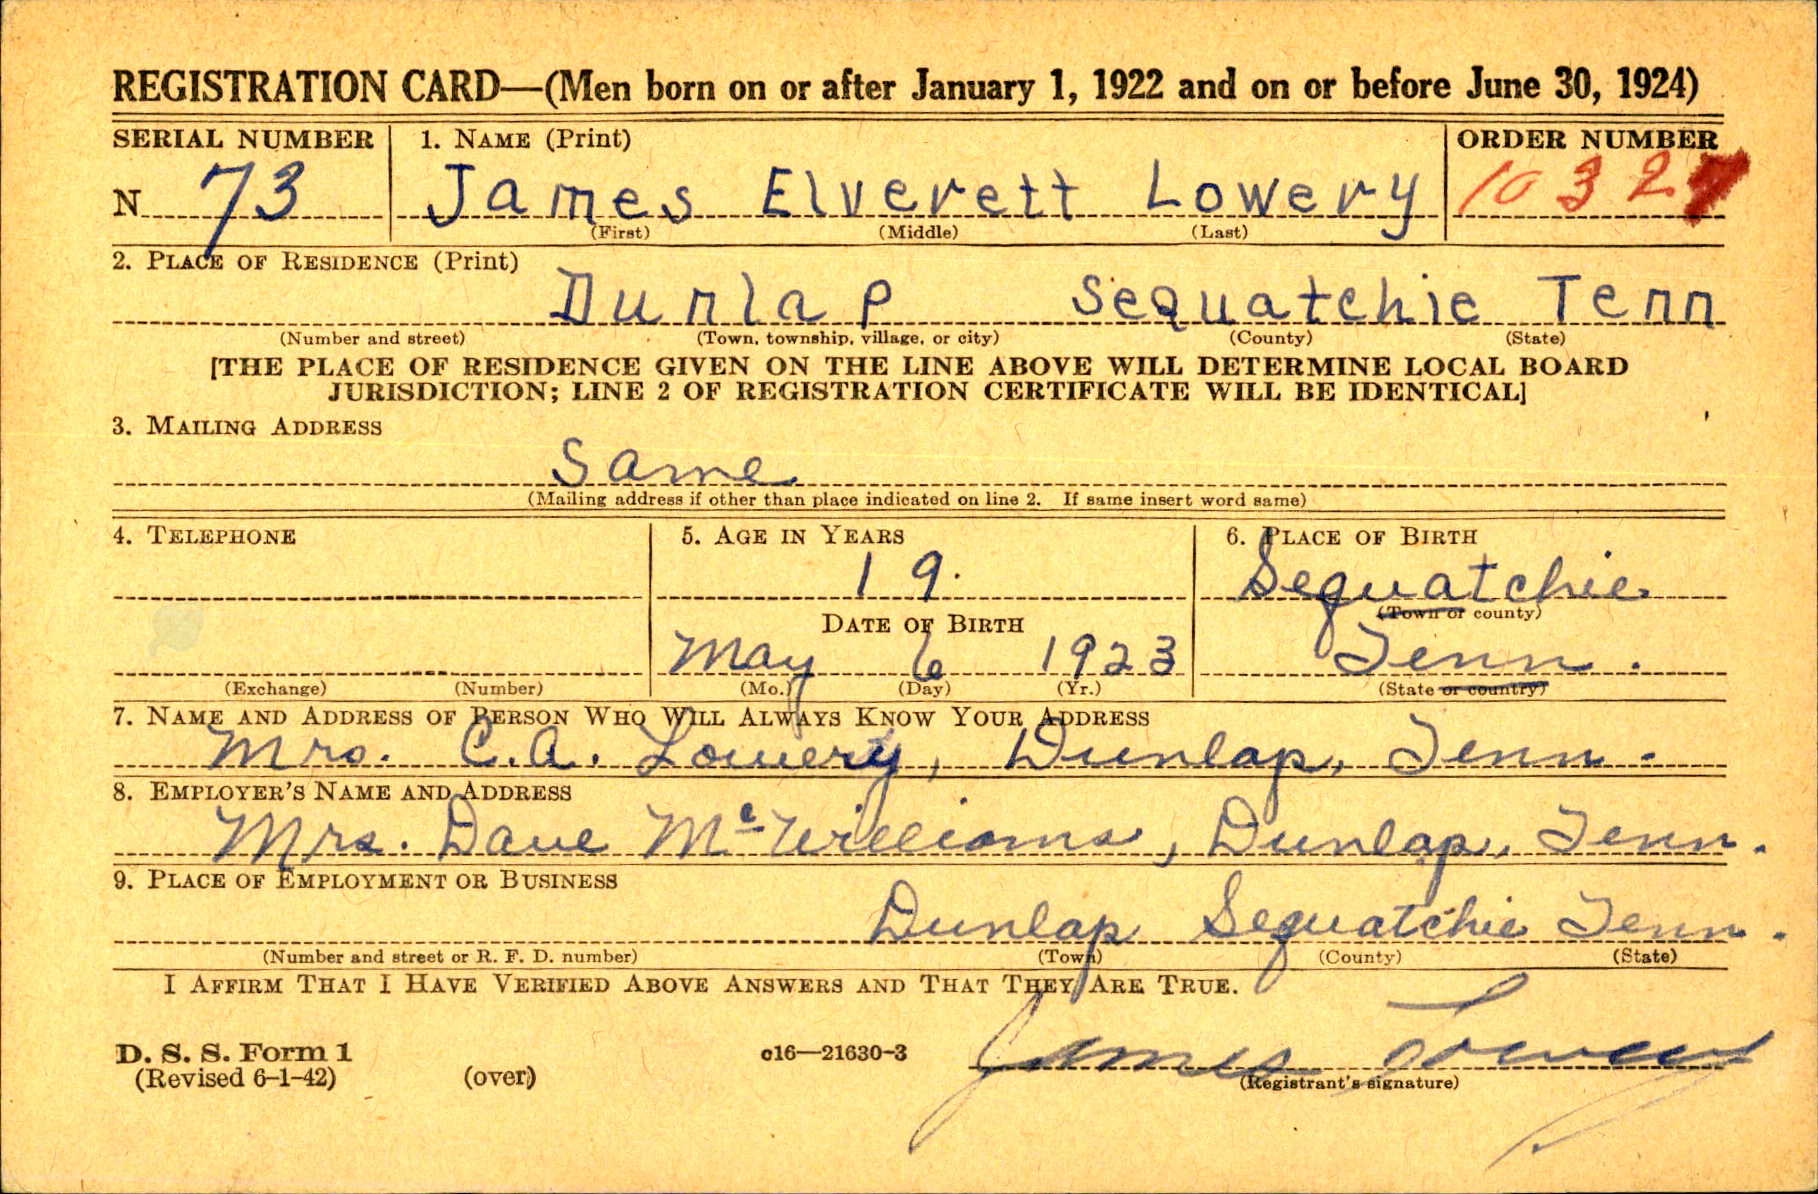 REGISTRATION CARD—(Men born on or after January 1, 1922 and on or before June 30, 1924)
SERIAL NUMBER 1. NAME (Print) ORDER NUMBER
N 73 James Elverett Lowery 10327
(First) (Middle) (Last)
2. PLACE OF RESIDENCE (Print)
Dunlap Sequatchie Tenn
(Number and street) (Town, township, village, or city) (County) (State)
[THE PLACE OF RESIDENCE GIVEN ON THE LINE ABOVE WILL DETERMINE LOCAL BOARD
JURISDICTION; LINE 2 OF REGISTRATION CERTIFICATE WILL BE IDENTICAL]
3. MAILING ADDRESS
Same
(Mailing address if other than place indicated on line 2. If same insert word same)
4. TELEPHONE 5. AGE IN YEARS 6. PLACE OF BIRTH
19. Sequatchie
(Town or county)
DATE OF BIRTH
May 6 1923 Tenn.
(Exchange) (Number) (Mo.) (Day) (Yr.) (State or country)
7. NAME AND ADDRESS OF PERSON WHO WILL ALWAYS KNOW YOUR ADDRESS
Mrs. C.A. Lowery, Dunlap, Tenn.
8. EMPLOYER'S NAME AND ADDRESS
Mrs. Dave McWilliams, Dunlap, Tenn.
9. PLACE OF EMPLOYMENT OR BUSINESS
Dunlap Sequatchie Tenn.
(Number and street or R. F. D. number) (Town) (County) (State)
I AFFIRM THAT I HAVE VERIFIED ABOVE ANSWERS AND THAT THEY ARE TRUE.
James Lowery
D. S. S. Form 1 c16—21630-3
(Revised 6-1-42) (over) (Registrant's signature)